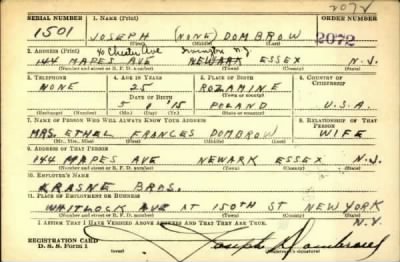 2072
SERIAL NUMBER 1. NAME (Print) ORDER NUMBER
1501 JOSEPH (NONE) DOMBROW 2072
(First) (Middle) (Last)
2. ADDRESS (Print) 40 Chester Ave Irvington N.J.
144 MAPES AVE NEWARK ESSEX N.J.
(Number and street or R. F. D. number) (Town) (County) (State)
3. TELEPHONE 4. AGE IN YEARS 5. PLACE OF BIRTH 6. COUNTRY OF CITIZENSHIP
NONE 25 ROZAMINE
DATE OF BIRTH (Town or county)
5 1 15 POLAND U.S.A.
(Exchange) (Number) (Mo.) (Day) (Yr.) (State or country)
7. NAME OF PERSON WHO WILL ALWAYS KNOW YOUR ADDRESS 8. RELATIONSHIP OF THAT PERSON
MRS. ETHEL FRANCES DOMBROW WIFE
(Mr., Mrs., Miss) (First) (Middle) (Last)
9. ADDRESS OF THAT PERSON
144 MAPES AVE NEWARK ESSEX N.J.
(Number and street or R. F. D. number) (Town) (County) (State)
10. EMPLOYER'S NAME
KRASNE BROS.
11. PLACE OF EMPLOYMENT OR BUSINESS
WHITLOCK AVE AT 150TH ST NEW YORK
(Number and street or R. F. D. number) (Town) (County) (State)
I AFFIRM THAT I HAVE VERIFIED ABOVE ANSWERS AND THAT THEY ARE TRUE. N.Y.
REGISTRATION CARD
D. S. S. Form 1 Joseph Dombrow
(over) (Registrant's signature)